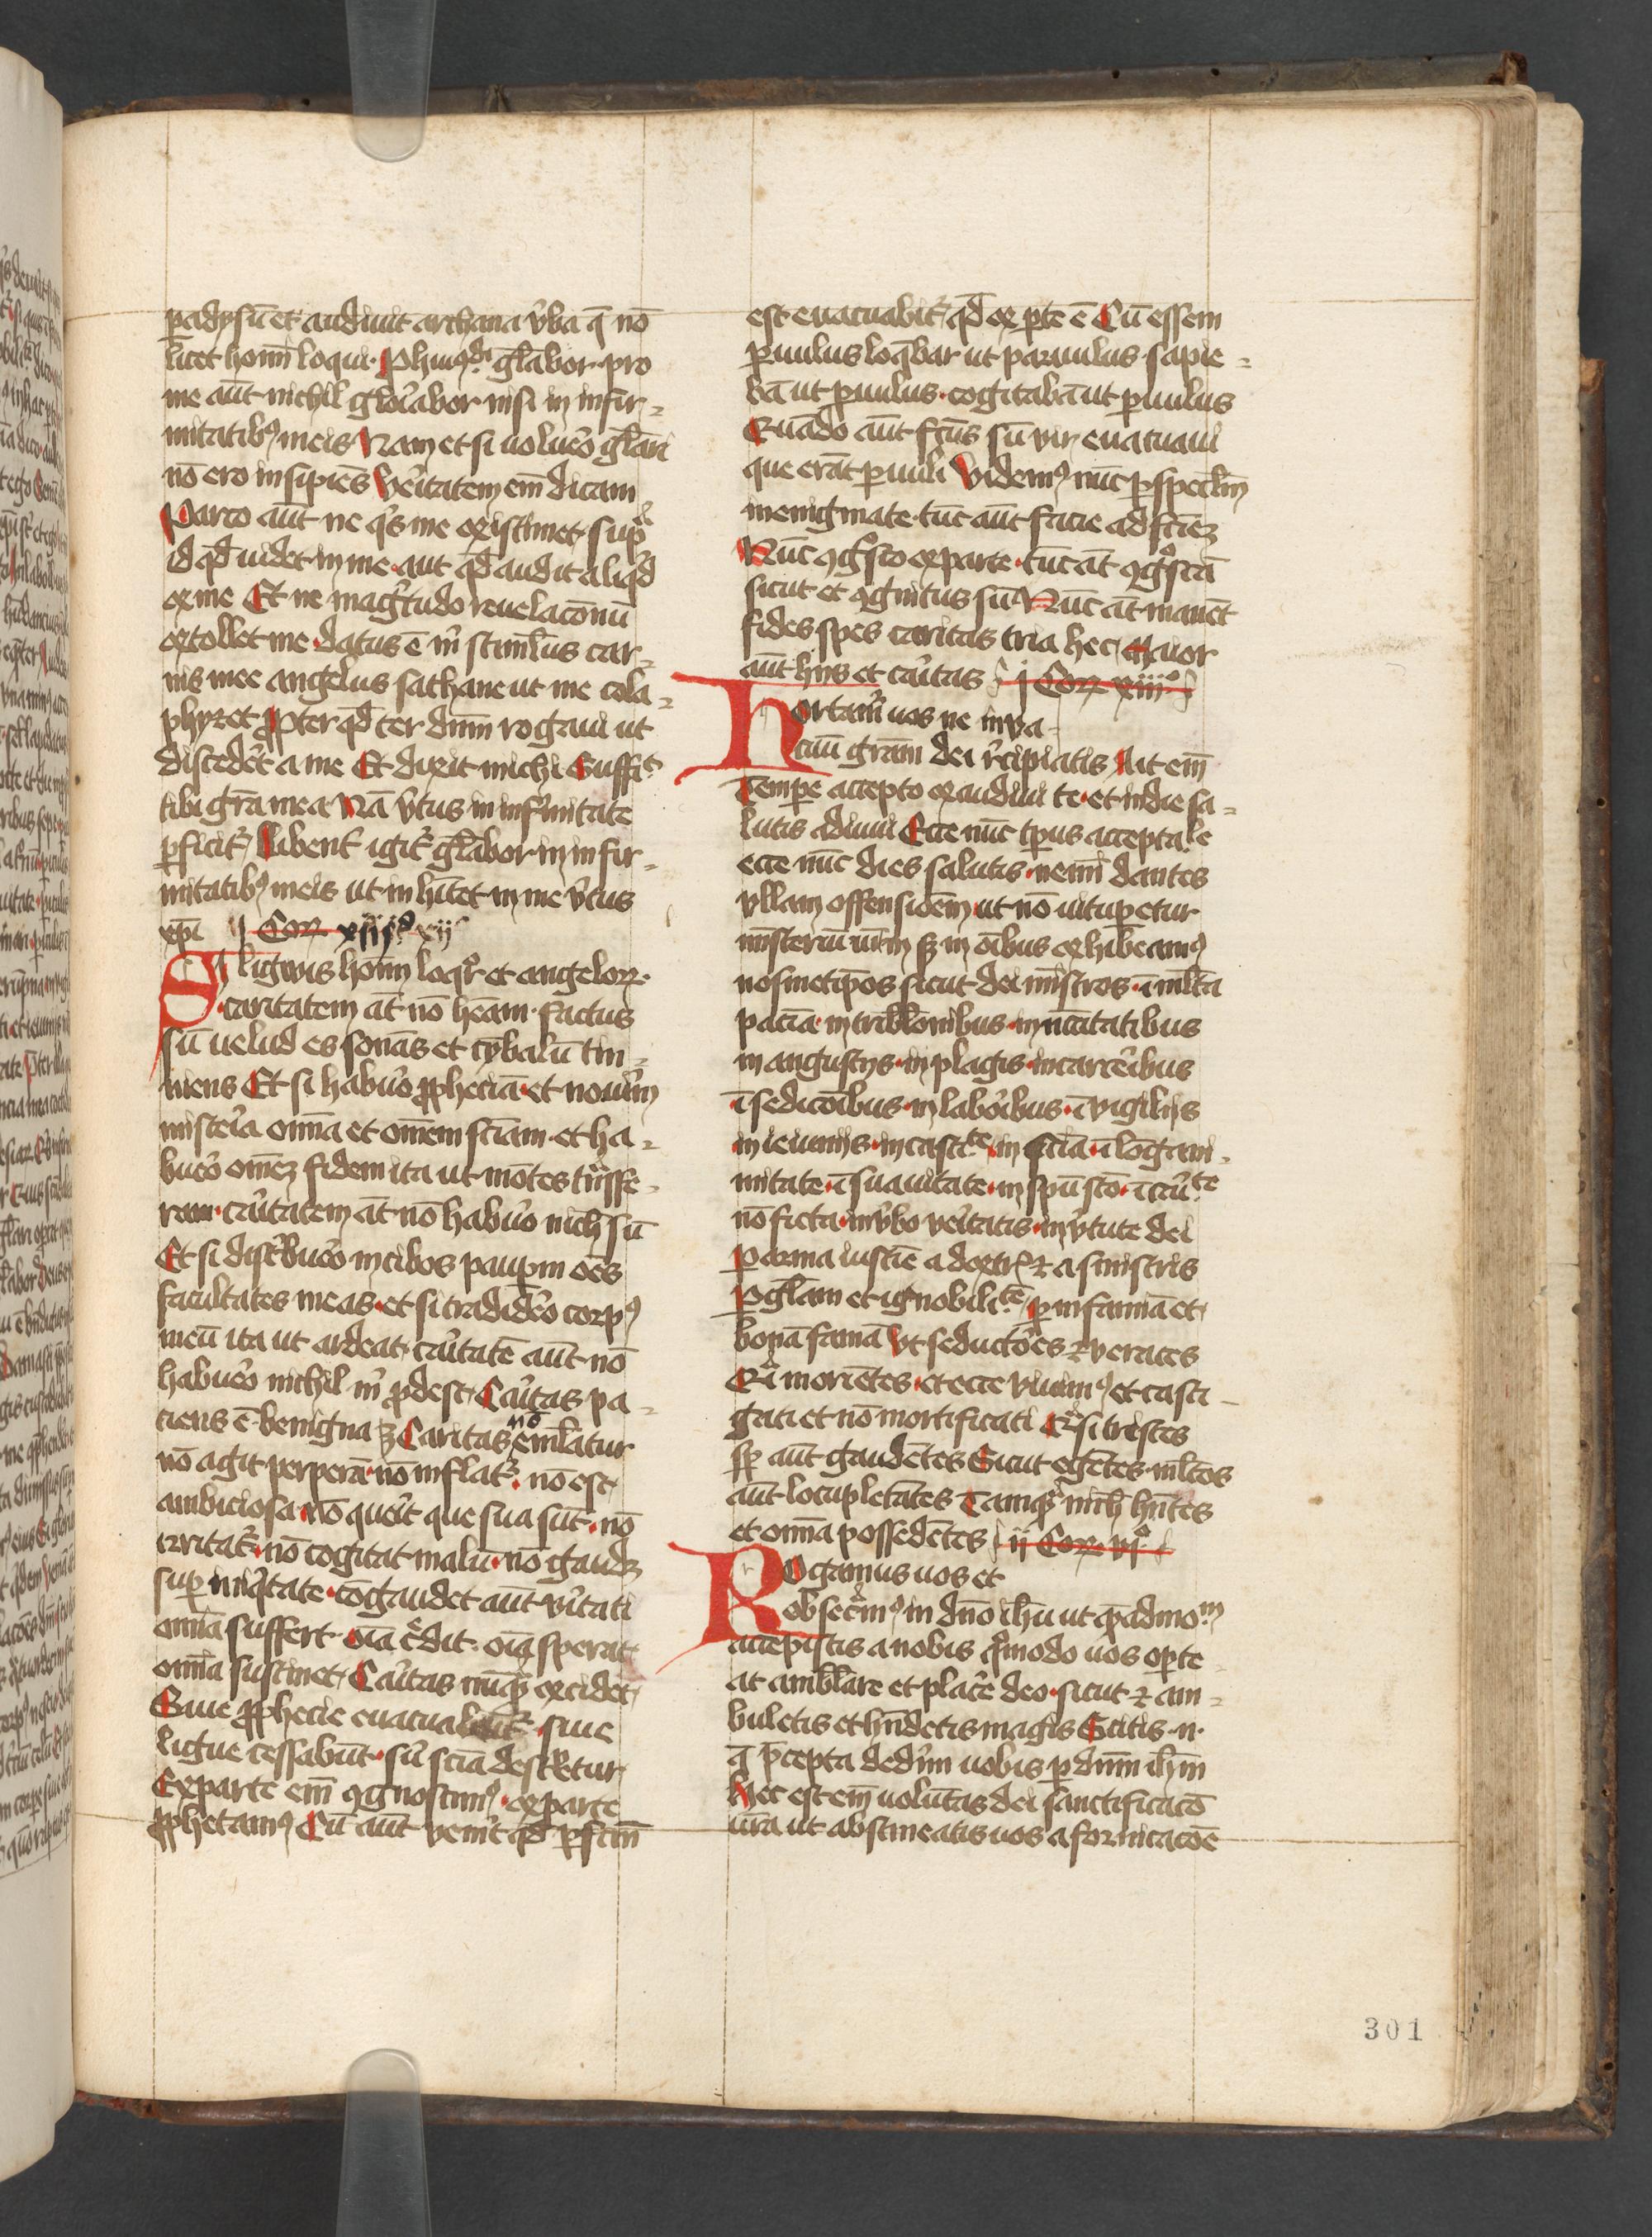 padysū et audiuit archana v̄ba q̄ nō
licet homī loqui · P huiꝰdi gl̄abor · pro
me aūt nichil glōabor nisi in infir⸗
mitatibꝰ meis Nam et si uoluēo gl̄ari
nō ero insipiēs Vēitatem em̄ dicam
Parco aūt ne q̇s me existimet · sup̄
id qd̄ uidet in me · aut qd̄ audit aliqd̄
ex me Et ne mag̊tudo reuelacōnū
extollet me · datus ē m̄ stimlus car⸗
nis mee angelus sathane ut me cola⸗
phyzet ꝓpter qd̄ ter dnm̄ rogaui ut
discedēt a me Et dixit michi Suffit
tibi grā mea Nā v̄tus in infirmitate
ꝑficit᷑ Libent᷑ igit᷑ gl̄abor in infir⸗
mitatibꝰ meis ut inhītet in me v̄tus
xp̄i j Cor xiijo xij
Si ligwis homī loqr̊ et angeloꝝ ·
caritatem āt nō hēam · factus
sū uelud es sonās et cȳbalū tin⸗
niens Et si habuēo ꝓpheciā · et nouīm
mistēia om̄a et om̄em scīam · et ha⸗
buēo om̄ez fidem ita ut mōtes tn̄sfe⸗
ram · cāitatem āt nō habuēo nich̄ sū
Et si distbuēo in cibos paup̄m oēs
facultates meas · et si tradidēo corpꝰ
meū ita ut ardeat · cāitatē aūt nō
habuēo nichil m̄ ꝓdest · Cāitas pa⸗
ciens ē · benigna ꝫ Caritas nō em̄latur
nō agit perperā · nō inflat᷑ · nō est
ambiciosa · nō queīt que sua sūt · nō
irritat᷑ · nō cogitat malū · nō gaudꝫ
sup̄ iniq̇tate · cōgaudet aūt vītati
om̄ia suffert · oīa c̄dit · oīa sperat
om̄ia sustinet · Cāitas nūqꝫ excidet
Siue ꝓphecie euacuabūt᷑ · siue
ligue cessabūt · sīu scīa destruetur
Ex parte em̄ ꝯgnoscimꝰ · ex parte
ꝓphetamꝰ Cū aūt venīt qd̄ ꝑfctm̄
est euacuabit᷑ qd̄ ex ꝑte ē Cū essem
ꝑuulus loq̄bar ut paruulus · sapie⸗
bā ut ꝑuulus · cogitabā ut ꝑuulus
Quādo aūt fc̄us sū vir euacuaui
que erāt ꝑuuli Videmꝰ nūc ꝑ specl̄m
in enigmate · tūc aūt facie ad faciēz
Nūc ꝯg̊sco ex parte · tūc āt ꝯg̊scā
sicut et ꝯgnitus sū Nūc āt manēt
fides spes caritas tria hec · Maior
aūt hijs et cāitas ij Cor viijo
Hortam̄ uos ne in va⸗
cuū grām dei r̄cipiatis Ait em̄
Tempe accepto exaudiui te · et in die sa⸗
lutis adiuui Ecce nūc tp̄us acceptale
ecce nūc dies salutis · nemī dantes
vllam offensioēm ut nō uitup̄etur
misteriū nr̄m sꝫ in oībus exhibeamꝰ
nosmetip̄os sicut dei mīstros · ī ml̄ta
pacīa · in tribl̄onibus · in nc̄itatibus
in angustijs · in plagis · in carcēibus
ī sediciōibus · in labōibus · ī vigilijs
in ieiunijs · in castte in scīa · ī lōgani⸗
mitate · ī suauitate · in spū scō · ī cāite
nō ficta · in v̄bo vēitatis · in v̄tute dei
P arma iusticīe a dextr᷑ ⁊ a sinistris
P gl̄am et ignobilite · ꝑ infamiā et
bonā famā Vt seductōes ⁊ veraces
Qi moriētes · et ecce viuimꝰ · et casti⸗
gati et nō mortificati Qi si tristes
sꝑ aūt gaudētes Sicut egētes · ml̄tos
aūt locupletātes Tamqꝫ nich̄ hn̄tes
et om̄ia possedētes ij Cor vjo
Rogamus uos et
obsec̄mꝰ in dn̄o ih̄u ut q̄admom
accepistis a nobis q̊modo uos oꝑte
at ambl̄are et placēe deo · sicut ⁊ am⸗
buletis et hn̄detis magis Scitis · n ·
q̄ p̄cepta dedīm uobis ꝑ dnm̄ ih̄m
Hec est em̄ uolūtas dei sanctificacō
ur̄a ut abstineatis uos a fornicacōe
301